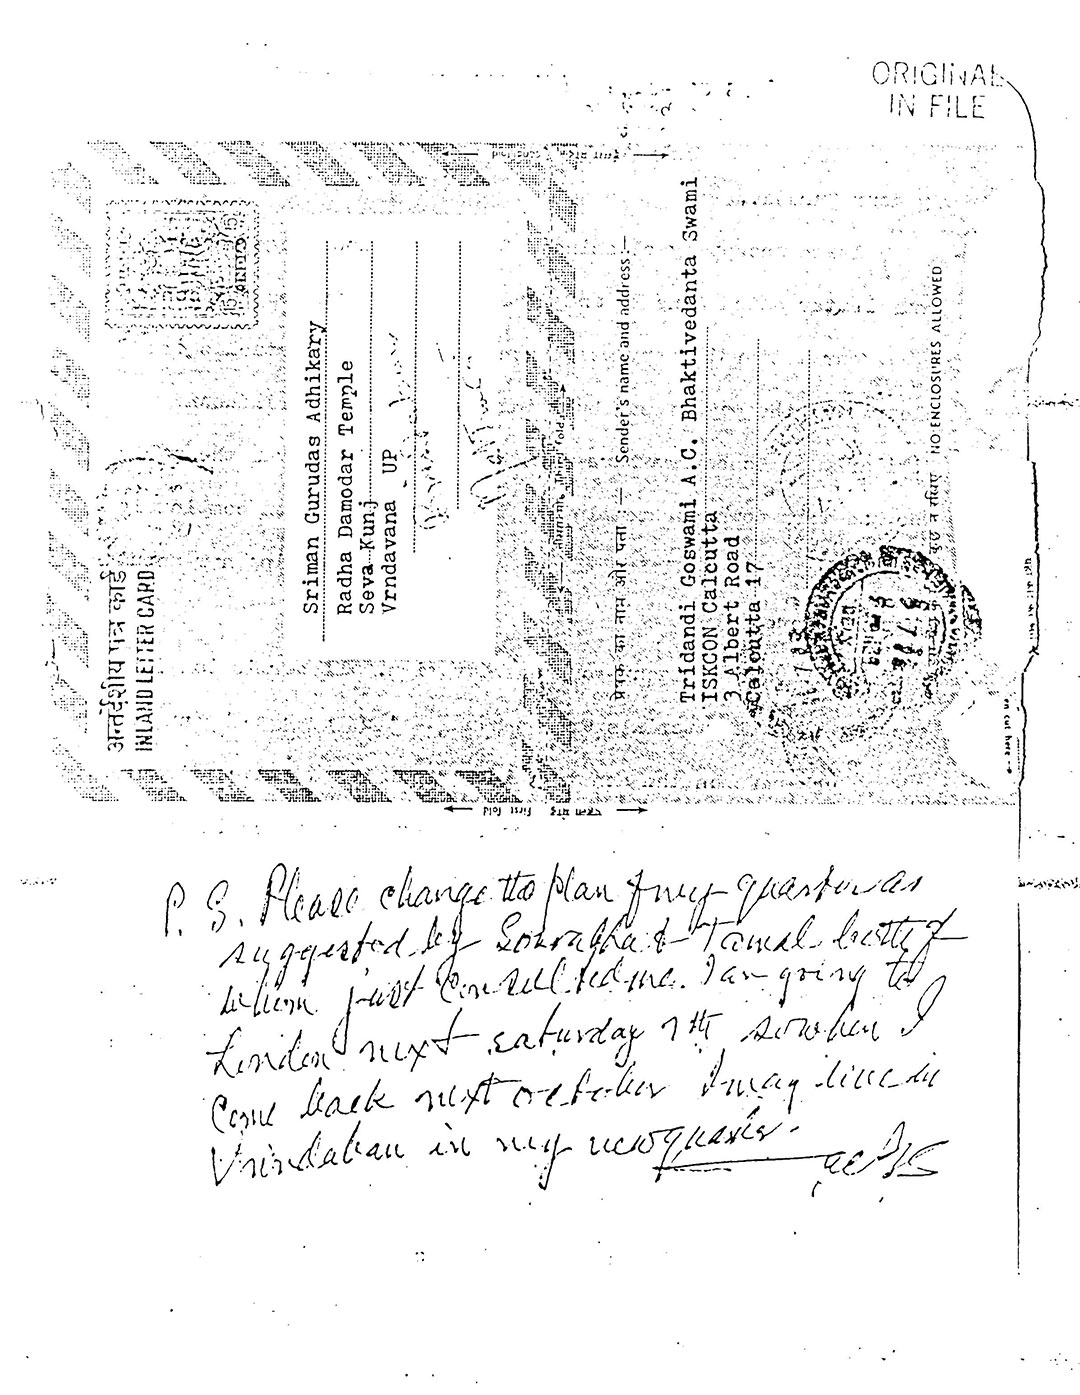 ORIGINAL
IN FILE
अन्तर्देशीय पत्र कार्ड
INLAND LETTER CARD
Sriman Gurudas Adhikary
Radha Damodar Temple
Seva Kunj
Vrndavana UP
प्रेषक का नाम और पता :— Sender's name and address:—
Tridandi Goswami A.C. Bhaktivedanta Swami
ISKCON Calcutta
3 Albert Road
Calcutta 17
NO ENCLOSURES ALLOWED
पहला मोड़ First fold
P. S. Please change the plan of my quarter as
suggested by Sourabha & Tamal both of
whom just consulted me. I am going to
London next saturday 7th so when I
come back next october I may live in
Vrindaban in my new quarter.
ACBS